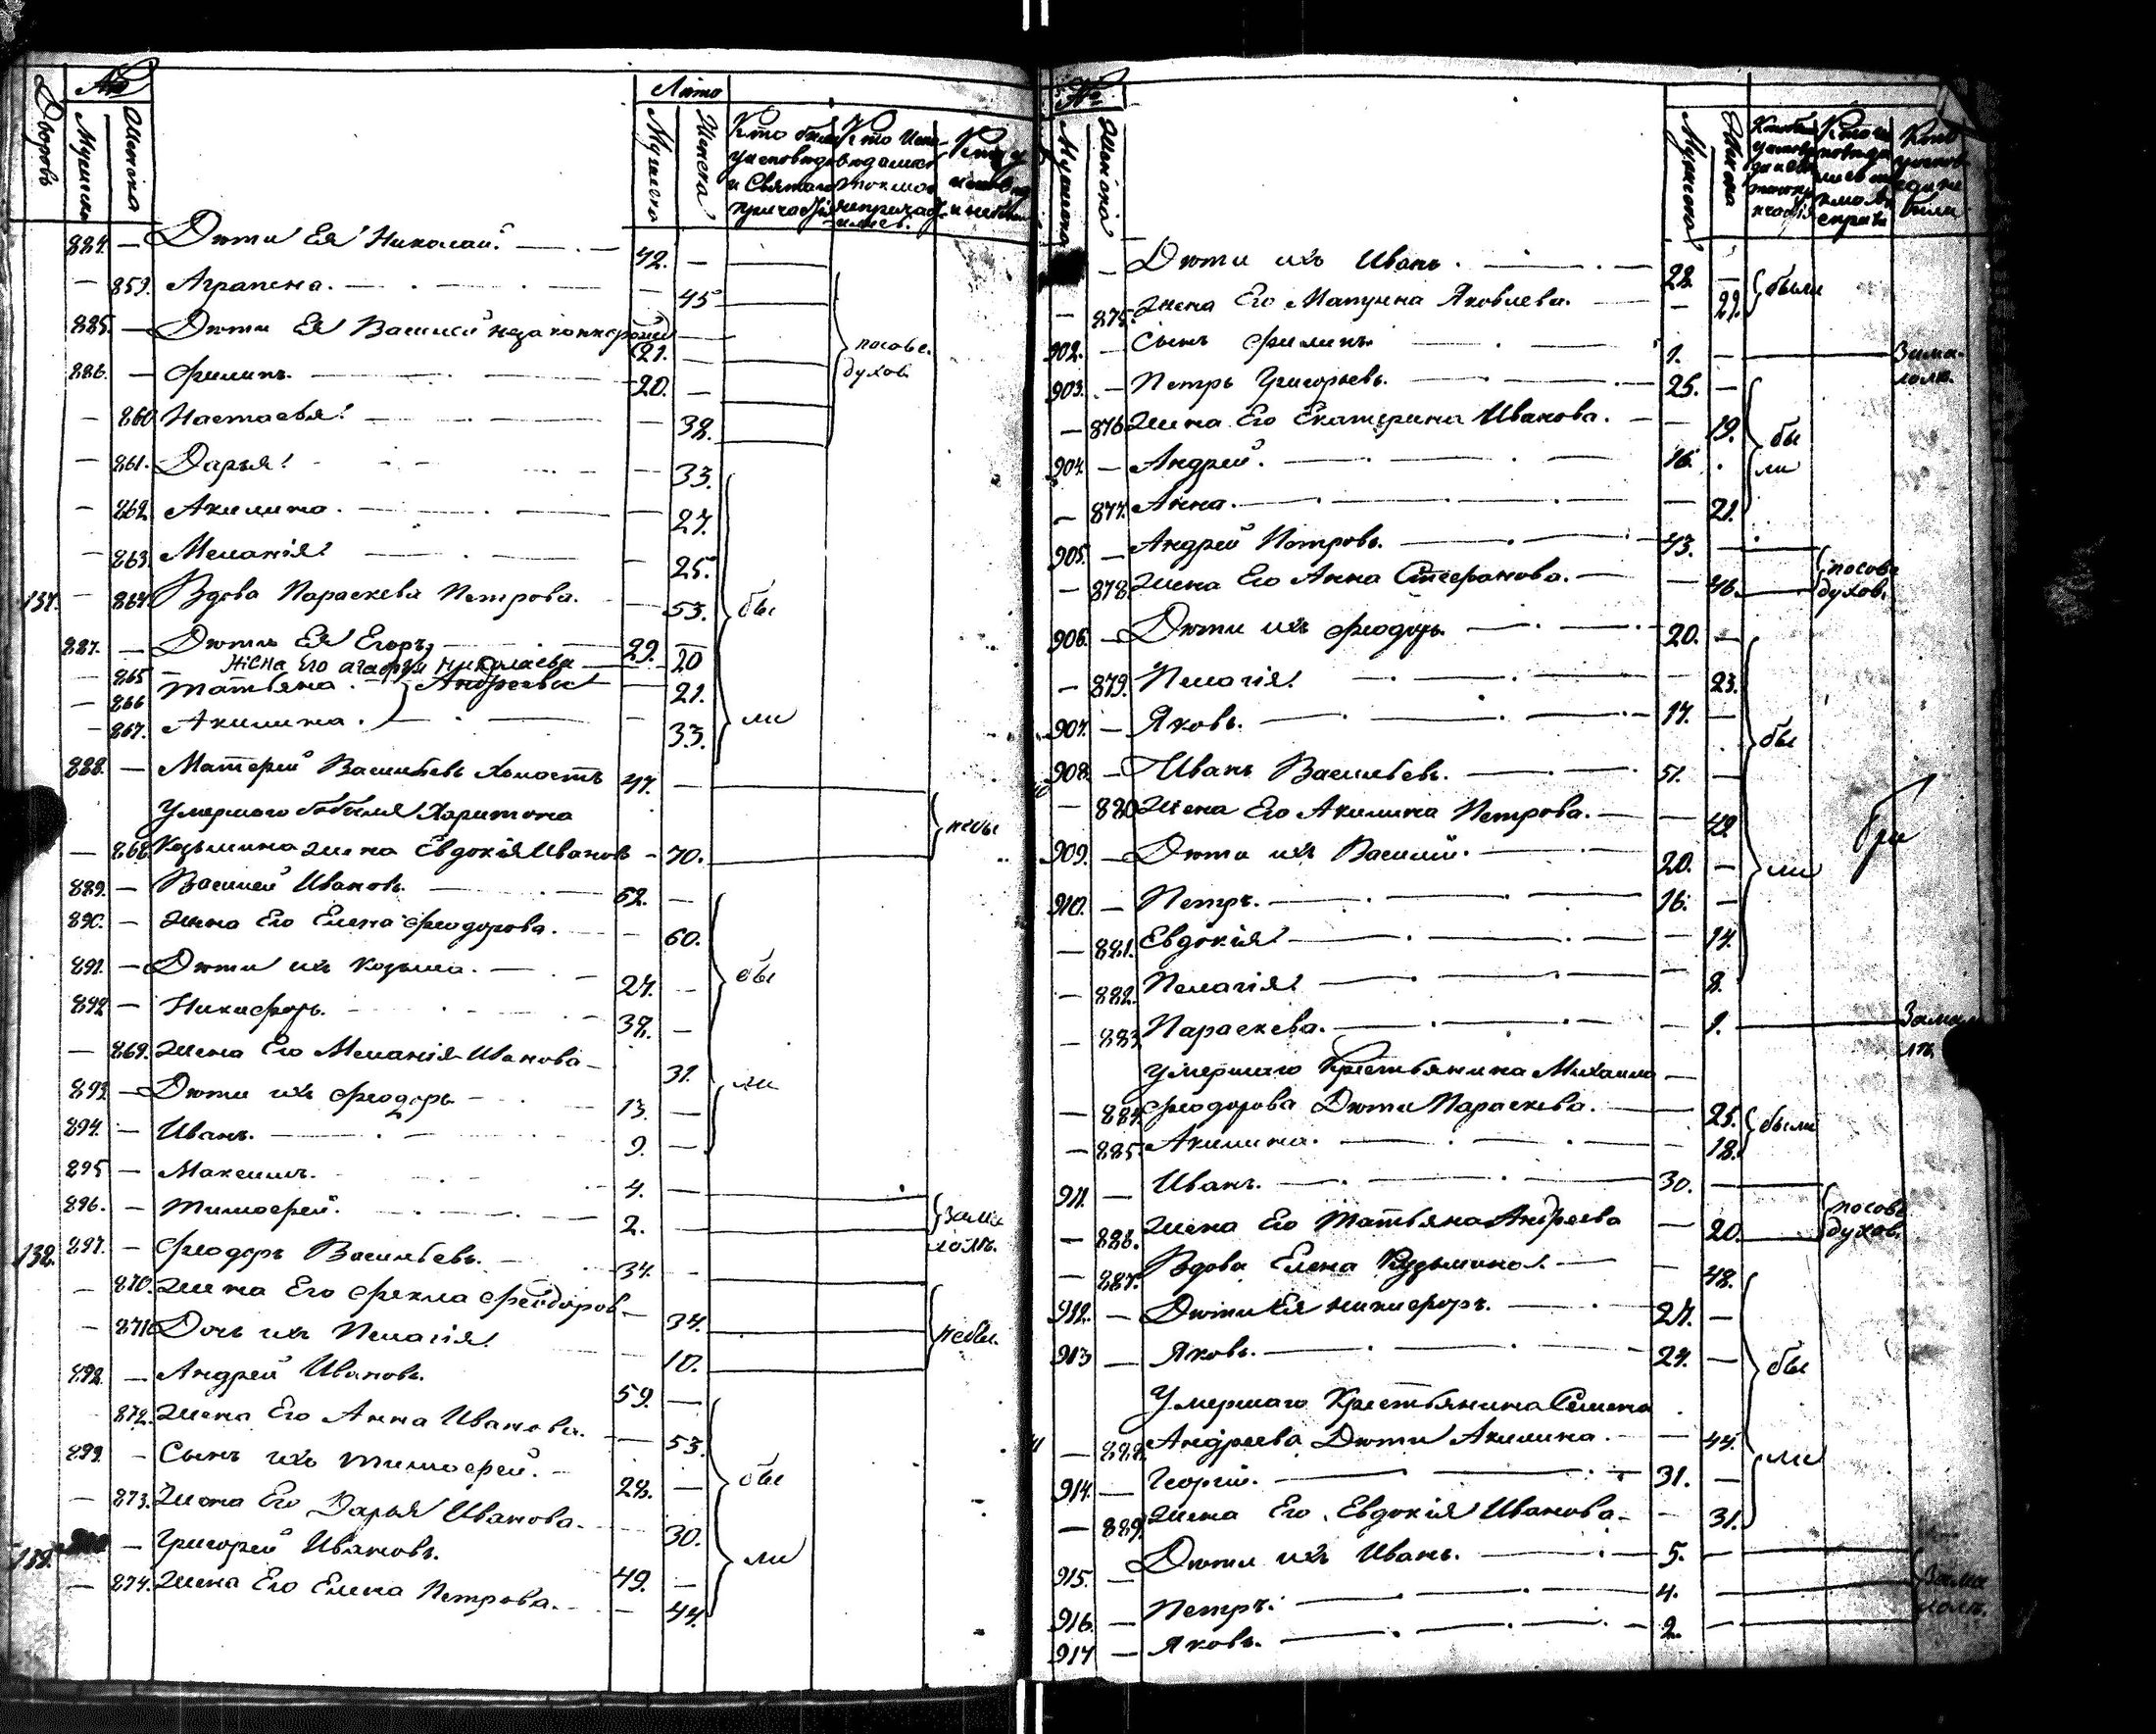 Дворовъ
№
Мужеска
Женска
Лѣто
Мужеска
Женска
Кто были
у исповѣди
и Святаго
причастія
Кто испо-
вѣдались
токмо
непричаст-
ились.
884. — Дѣти Ея Николай. 42. —
— 859. Аграпена. — 45
885. — Дѣти Ея Василій незаконнорож 21.
886. — Филипъ. 20. —
посове.
духов.
— 860 Настасья — 38.
— 861. Дарья 33.
— 862. Акилина. — 27.
— 863. Меланія — 25.
137. — 864 Вдова Параскева Петрова. — 53.
бы
887. — Дѣти Ея Егоръ, 29. —
— 865 — жена Его Агафья Николаева — 20
— 866 Татьяна. } Андреевы — 21.
— 867. Акилина. — 33.
ли
888. — Матфей Васильевъ холостъ 47. —
Умершаго бобыля Харитона
— 868 Козьмина жена Евдокія Иванов — 70.
небы
889. — Василей Ивановъ. 62. —
890. — жена Его Елена Феодорова. — 60.
891. — Дѣти ихъ Козьма. 27. —
бы
892 — Никифоръ. 38. —
— 869. Жена Его Меланія Иванова — 31.
ли
893 — Дѣти ихъ Феодоръ 13. —
894. — Иванъ. 9. —
895 — Максимъ. 4. —
896. — Тимофей. 2. —
зама
лолѣт.
138. 897. — Феодоръ Васильевъ. 34. —
— 870. Жена Его Фекла Феодоров 34.
— 871 Дочь ихъ Пелагія 10.
небы.
898. — Андрей Ивановъ. 59. —
872. Жена Его Анна Иванова. — 53.
899. — Сынъ ихъ Тимофей. 28. —
бы
— 873. Жена Его Дарья Иванова. 30.
139. — Григорей Ивановъ. 49. —
ли
— 874. Жена Его Елена Петрова. — 44.
№
Мужеска
Женска
Мужеска
Женска
— Дѣти ихъ Иванъ. 28. —
были
— 875. Жена Его Матрина Яковлева. — 29.
902. — Сынъ Филипъ 1. —
Зама-
лолѣ.
903. — Петръ Григорьевъ. 25. —
— 876 Жена Его Екатерина Иванова. — 19.
бы
904. — Андрей. 16.
ли
— 877. Анна. — 21.
905. — Андрей Петровъ. 43. —
— 878 Жена Его Анна Стефанова. — 46.
посове
духов.
906. — Дѣти ихъ Феодоръ 20. —
— 879. Пелагія — 23.
907. — Яковъ. 17. —
бы
908. — Иванъ Васильевъ. 51. —
— 880 Жена Его Акилина Петрова. — 42
909. — Дѣти ихъ Василій. 20. —
ли
910. — Петръ. 16. —
— 881. Евдокія — 14.
— 882. Пелагія — 8.
— 883 Параскева. — 1.
Замал
лѣ.
Умершаго Крестьянина Михаила
— 884 Феодорова Дѣти Параскева. — 25.
были
— 885 Акилина. — 18.
911. — Иванъ. 30. —
— 886. Жена Его Татьяна Андреева — 20.
посове
духов.
— 887. Вдова Елена Кузьмина. — 48.
912. — Дѣти Ея Никифоръ. 27. —
913 — Яковъ. 24. —
бы
Умершаго Крестьянина Семена
— 888 Андреева Дѣти Акилина. — 44.
ли
914. — Георгій. 31. —
— 889 Жена Его Евдокія Иванова — 31.
915. — Дѣти ихъ Иванъ. 5. —
916. — Петръ. 4. —
917 — Яковъ. 2. —
Зама
лолѣ.